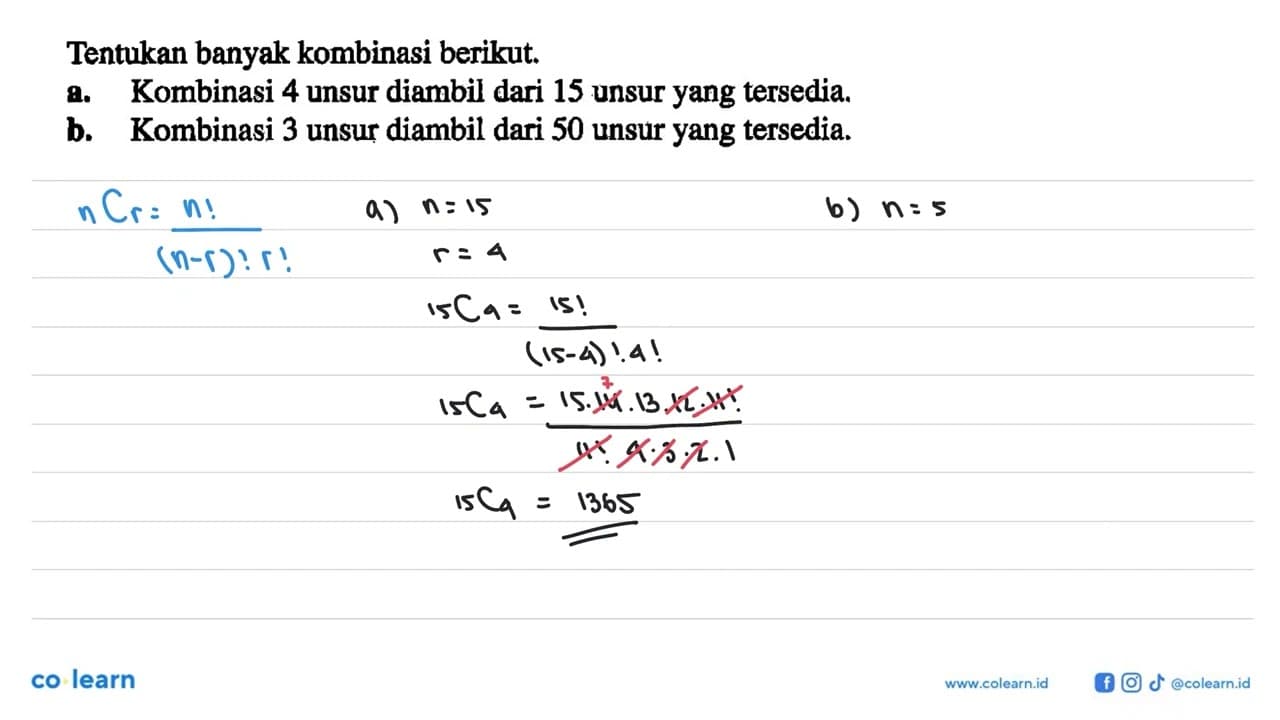 Tentukan banyak kombinasi berikut.
a. Kombinasi 4 unsur diambil dari 15 unsur yang tersedia.
b. Kombinasi 3 unsur diambil dari 50 unsur yang tersedia.
nCr = n!
(n-r)! r!
a) n = 15
r = 4
15C4 = 15!
(15-4)!.4!
7
15C4 = 15.14.13.12.11!
11!.4.3.2.1
15C4 = 1365
b) n = 5
co learn
www.colearn.id
@colearn.id